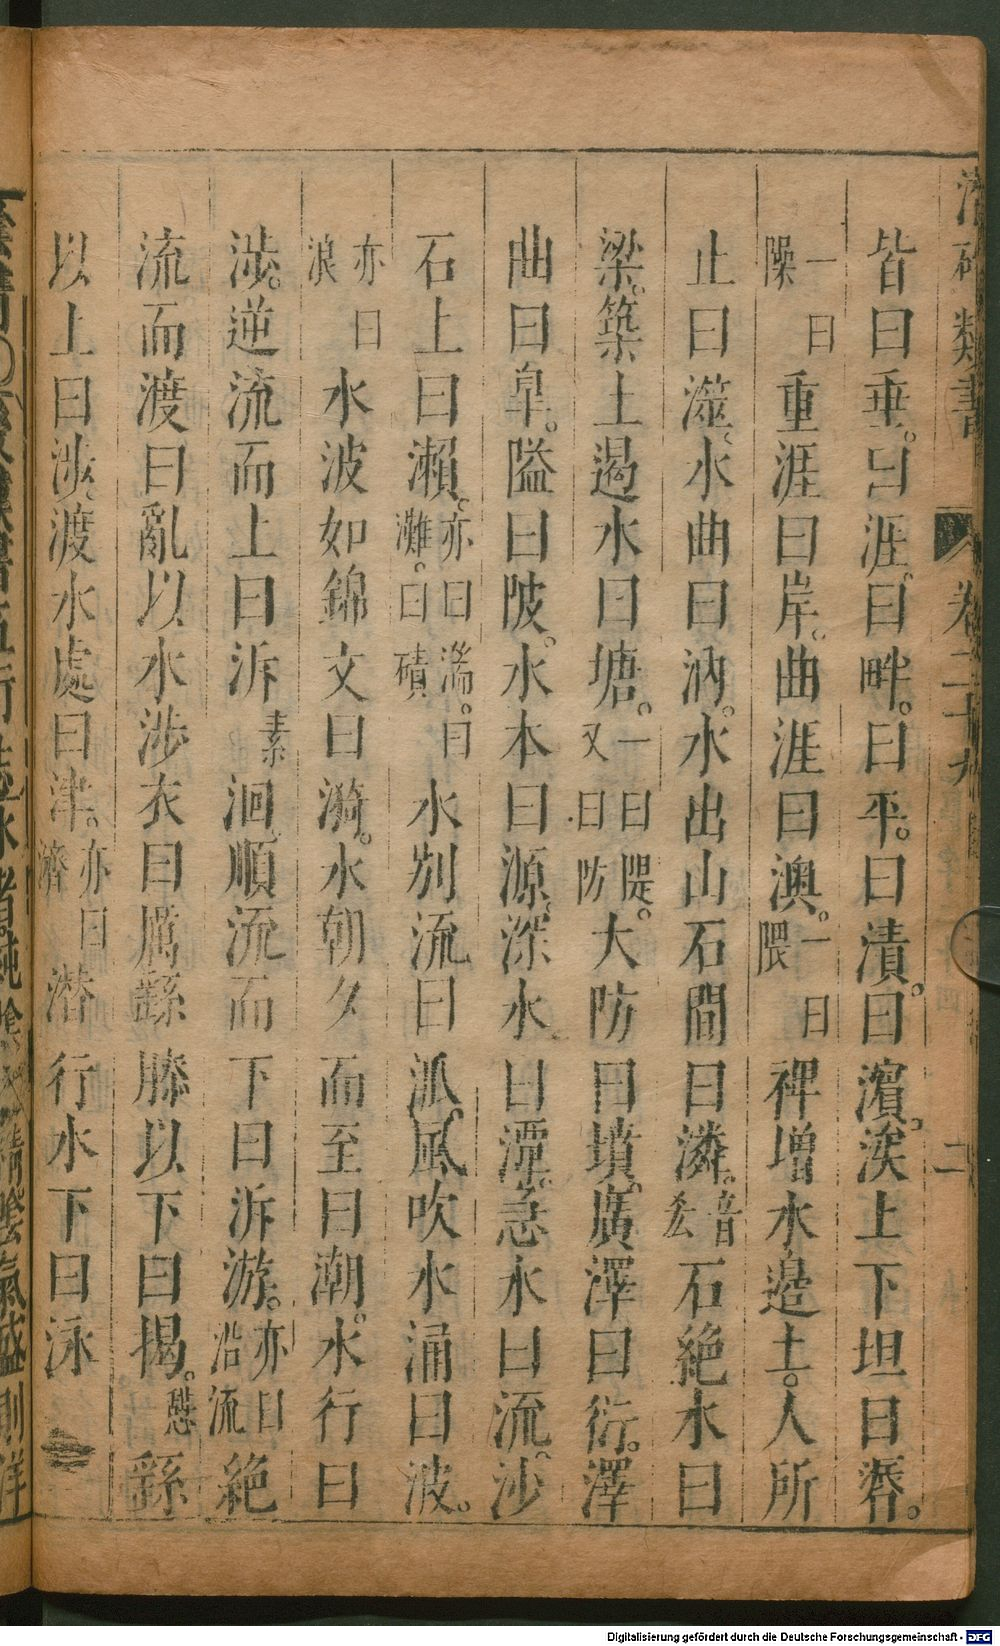 類書 卷二十九 二
皆曰垂。曰涯。曰畔。曰平。曰漬。曰濵。涘上下坦曰漘。
一曰隩重涯曰岸。曲涯曰澳。一曰隈禆增水邊土。人所
止曰澨、水曲曰汭。水出山石間曰潾。音叅石絶水曰
梁。築土遏水曰塘。一曰隄。又曰防大防曰墳。廣澤曰衍。澤
曲曰臯。隘曰陂。水本曰源。深水曰潭。急水曰流。沙
石上曰瀨。亦曰湍。曰灘。曰磧水别流曰派。風吹水涌曰波。
亦曰浪水波如錦文曰漪。水朝夕而至曰潮。水行曰
涉。逆流而上曰泝素洄、順流而下曰泝游。亦曰沿流絶
流而渡曰亂以水涉衣曰厲繇膝以下曰揭。憇繇
以上曰涉、渡水處曰津。亦曰濟潜行水下曰泳
Digitalisierung gefördert durch die Deutsche Forschungsgemeinschaft - DFG